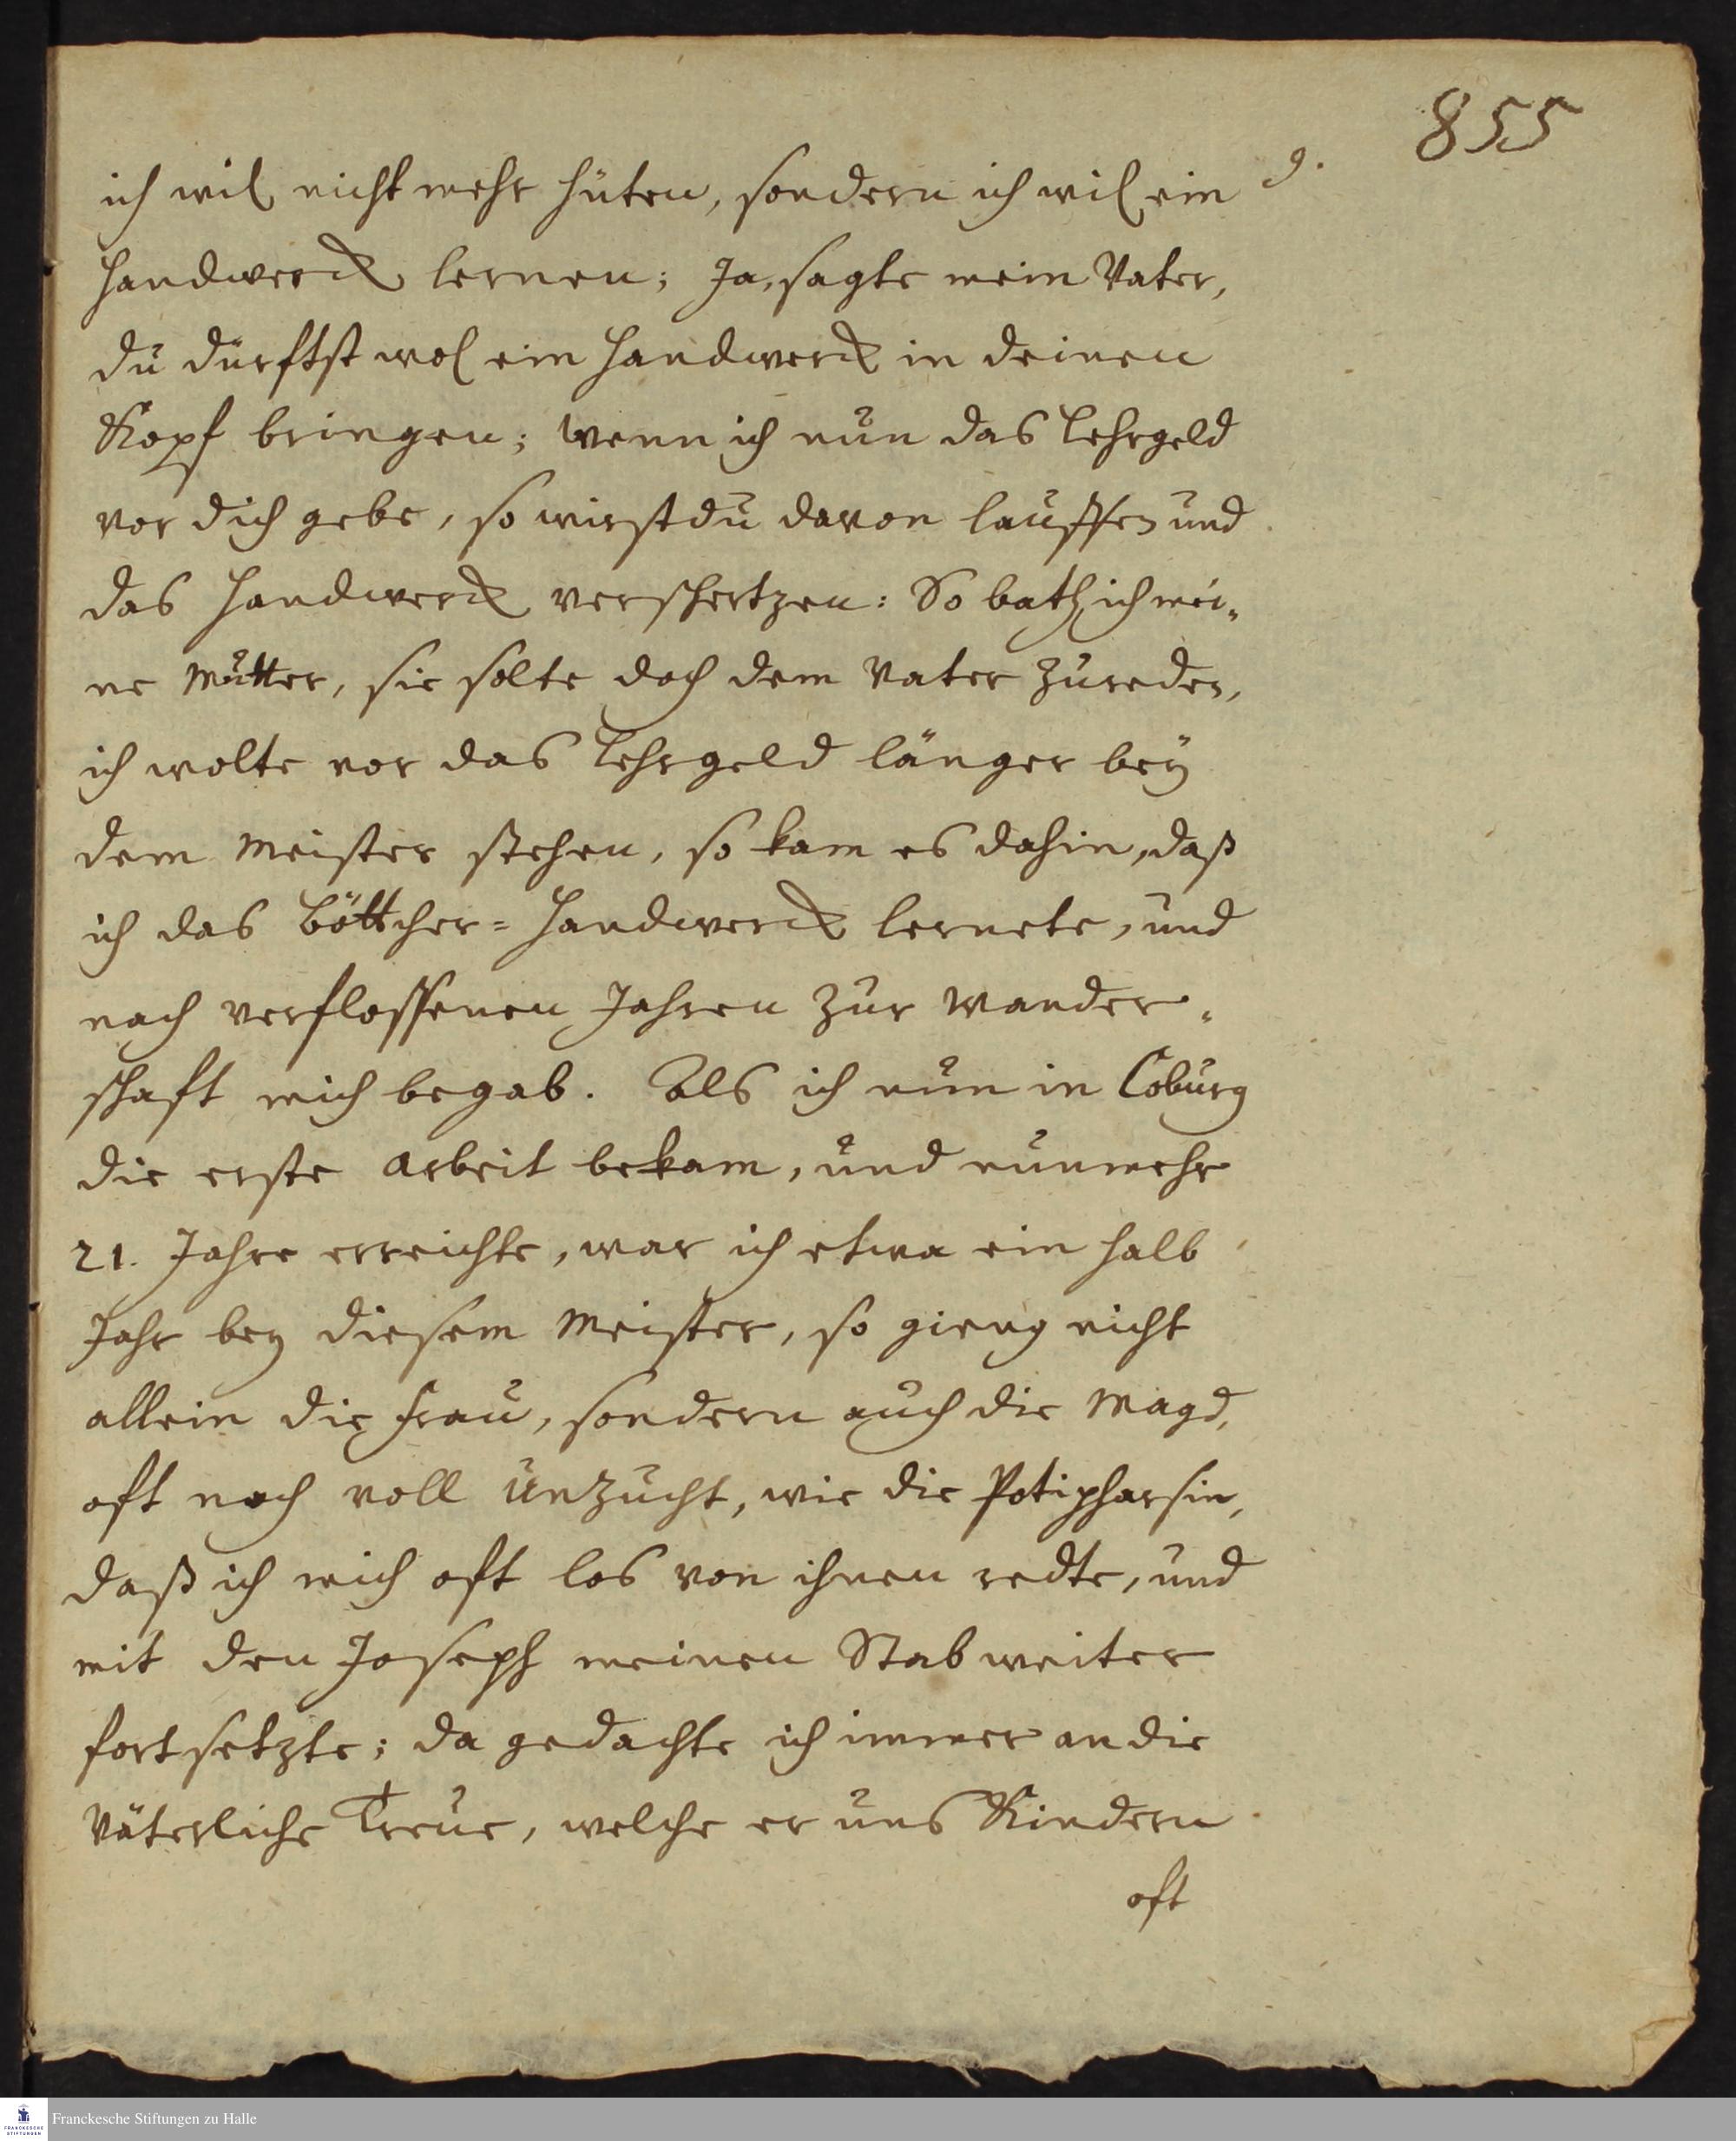 855
9.
ich wil nicht mehr hüten, sondern ich wil ein
Handwerck lernen; Ja, sagte mein Vater,
du dürftst wol ein Handwerck in deinen
Kopf bringen; wenn ich nun das Lehrgeld
vor dich gebe, so wirst du davon lauffen und
das Handwerck verschertzen: So bath ich mei-
ne Mutter, sie solte doch dem Vater zureden,
ich wolte vor das Lehrgeld länger bey
dem Meister stehen, so kam es dahin, daß
ich das Böttcher-Handwerck lernete, und
nach verflossenen Jahren zur Wander-
schaft mich begab. Als ich nun in Coburg
die erste Arbeit bekam, und nunmehr
21. Jahre erreichte, war ich etwa ein halb
Jahr bey diesem Meister, so gieng nicht
allein die Frau, sondern auch die Magd,
oft noch voll Unzucht, wie die Potipharsin,
daß ich mich oft los von ihnen redte, und
mit den Joseph meinen Stab weiter
fortsetzte; da gedachte ich immer an die
Väterliche Treue, welche er uns Kindern
oft
Franckesche Stiftungen zu Halle
FRANCKESCHE
STIFTUNGEN